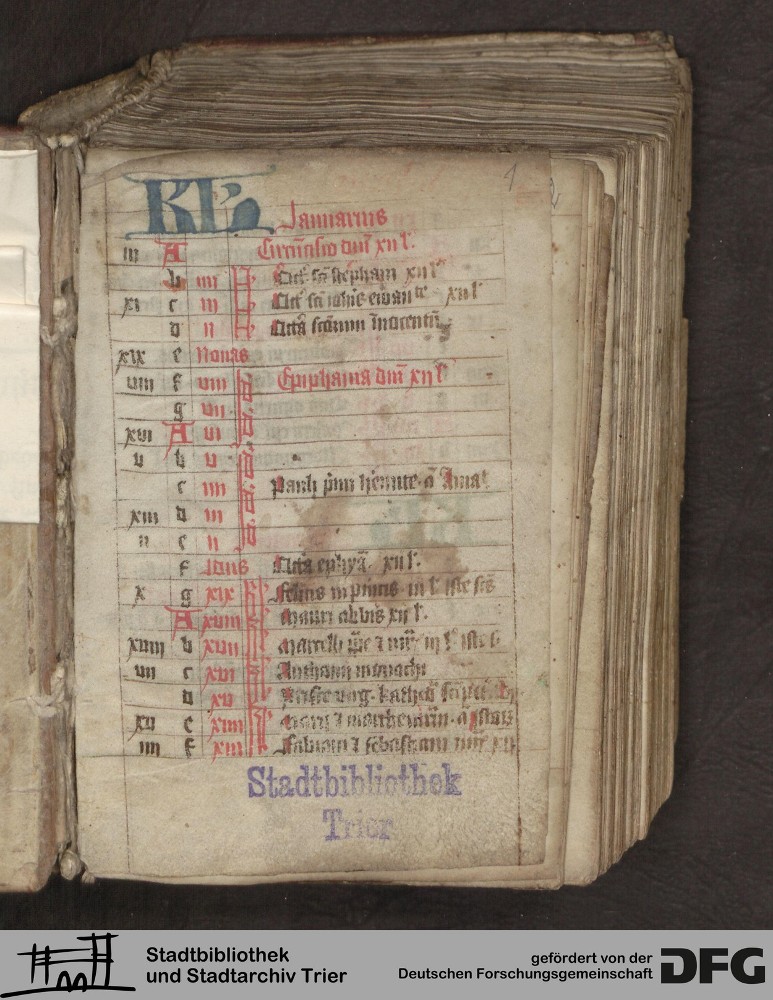 1
2
KL Januarius
iii A Circūcisio dn̄i xii l'.
b iiii Oct' sc̄i stephani xii l'
xi c iii Oct' sc̄i ioh̄is ewan^te xii l'
d ii Octa sc̄orum Innocentū
xix e Nonas
viii f viii Epiphania dn̄i xii l'
g vii
xvi A vi
v b v
c iiii Pauli p̄mi
xiii d iii
ii e ii
f Idus Octa ephya xii l'.
x g xix Felicis in pincis iii l'
A xviii Mauri abbis xii l'.
xviii b xvii Marcelli iii l'
vii c xvi Anthonii monachi
d xv Prisce virg.
xv e xiiii Marii
iiii f xiii Fabiani ⁊ sebastiani
Stadtbibliothek
Trier
Stadtbibliothek
und Stadtarchiv Trier
gefördert von der
Deutschen Forschungsgemeinschaft
DFG